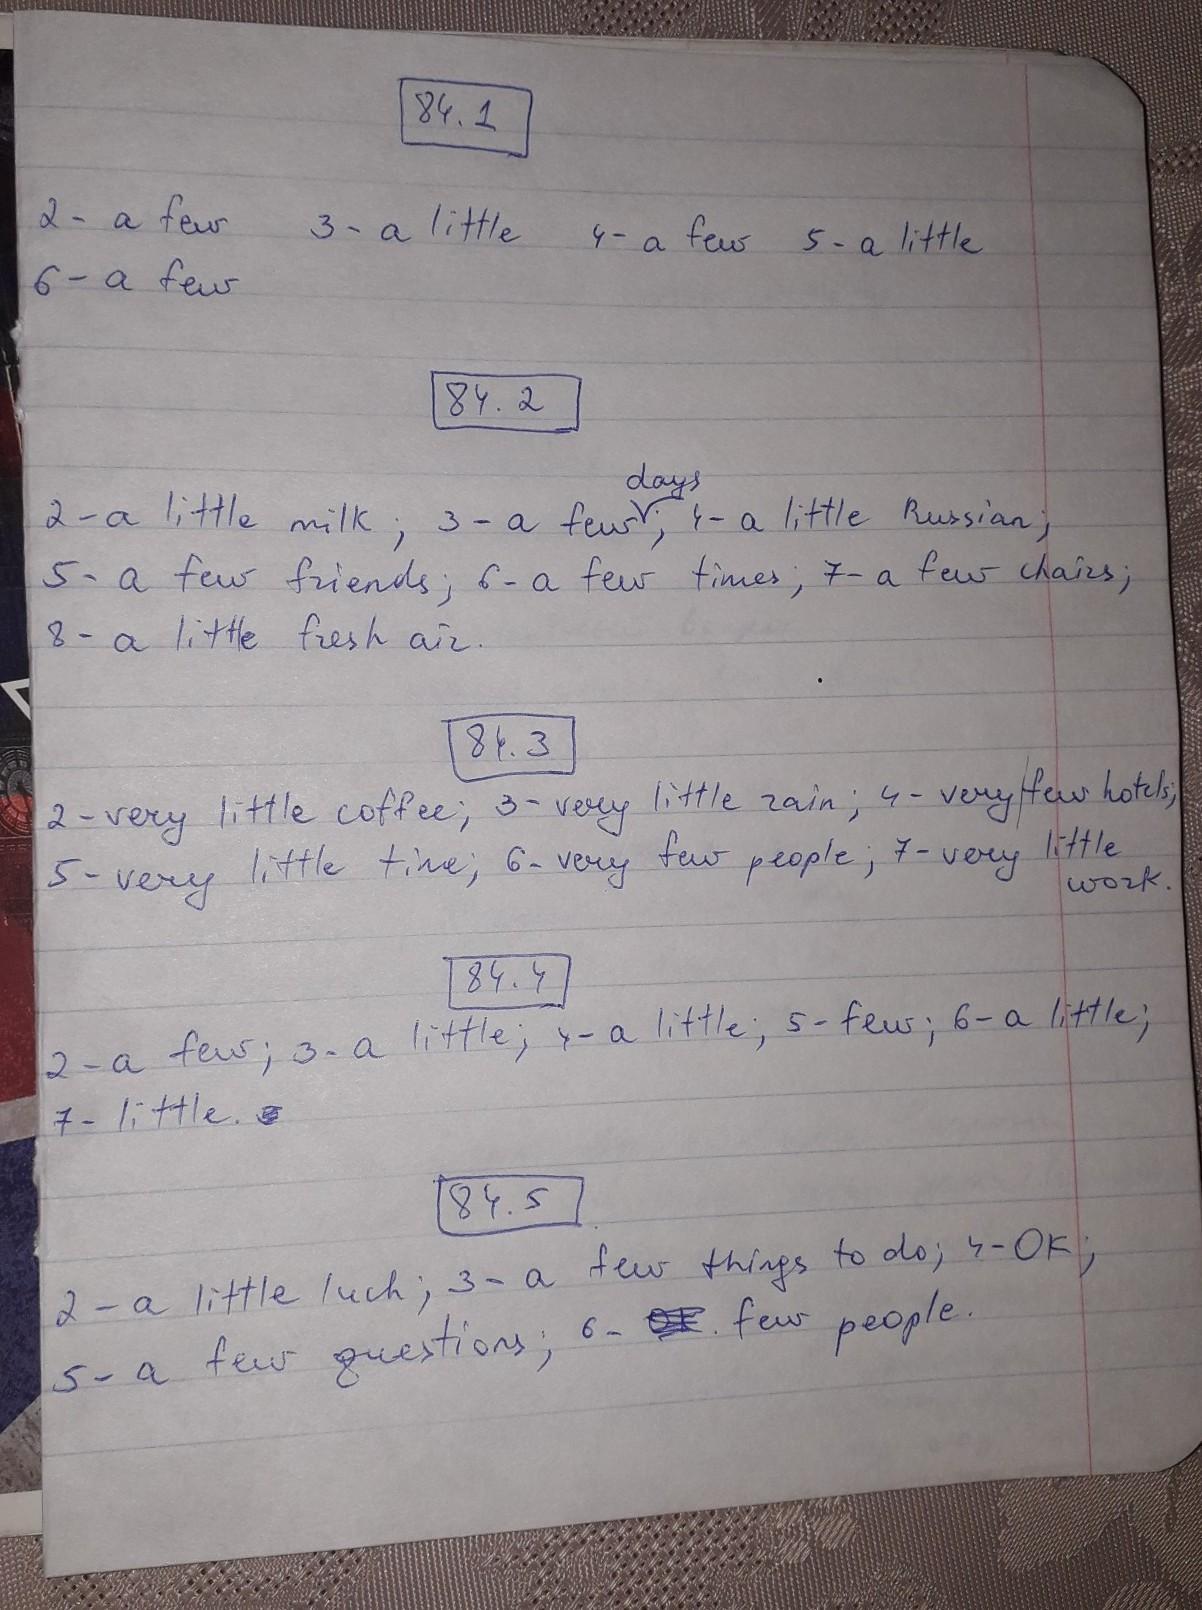 84.1
2 - a few 3 - a little 4 - a few 5 - a little
6 - a few
84.2
days
2 - a little milk; 3 - a few; 4 - a little Russian;
5 - a few friends; 6 - a few times; 7 - a few chairs;
8 - a little fresh air.
84.3
2 - very little coffee; 3 - very little rain; 4 - very few hotels;
5 - very little time; 6 - very few people; 7 - very little
work.
84.4
2 - a few; 3 - a little; 4 - a little; 5 - few; 6 - a little;
7 - little.
84.5
2 - a little luck; 3 - a few things to do; 4 - OK;
5 - a few questions; 6 - few people.